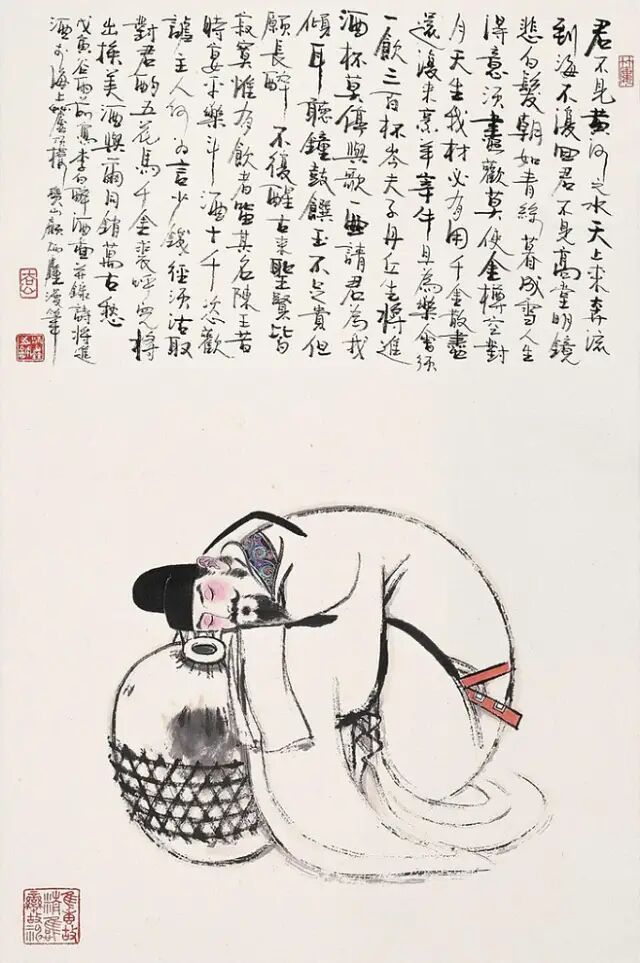 君不見黃河之水天上来奔流
到海不復回君不見高堂明鏡
悲白髮朝如青絲暮成雪人生
得意須盡歡莫使金樽空對
月天生我材必有用千金散盡
還復来烹羊宰牛且為樂會須
一飲三百杯岑夫子丹丘生將進
酒杯莫停與歌一曲請君為我
傾耳聽鐘鼓饌玉不足貴但
願長醉不復醒古来聖賢皆
寂寞惟有飲者留其名陳王昔
時宴平樂斗酒十千恣歡
謔主人何為言少錢徑須沽取
對君酌五花馬千金裘呼兒將
出換美酒與爾同銷萬古愁
戊寅谷雨前寫李白醉酒圖并錄詩將進
酒於海上樓寶山顧炳鑫漫筆